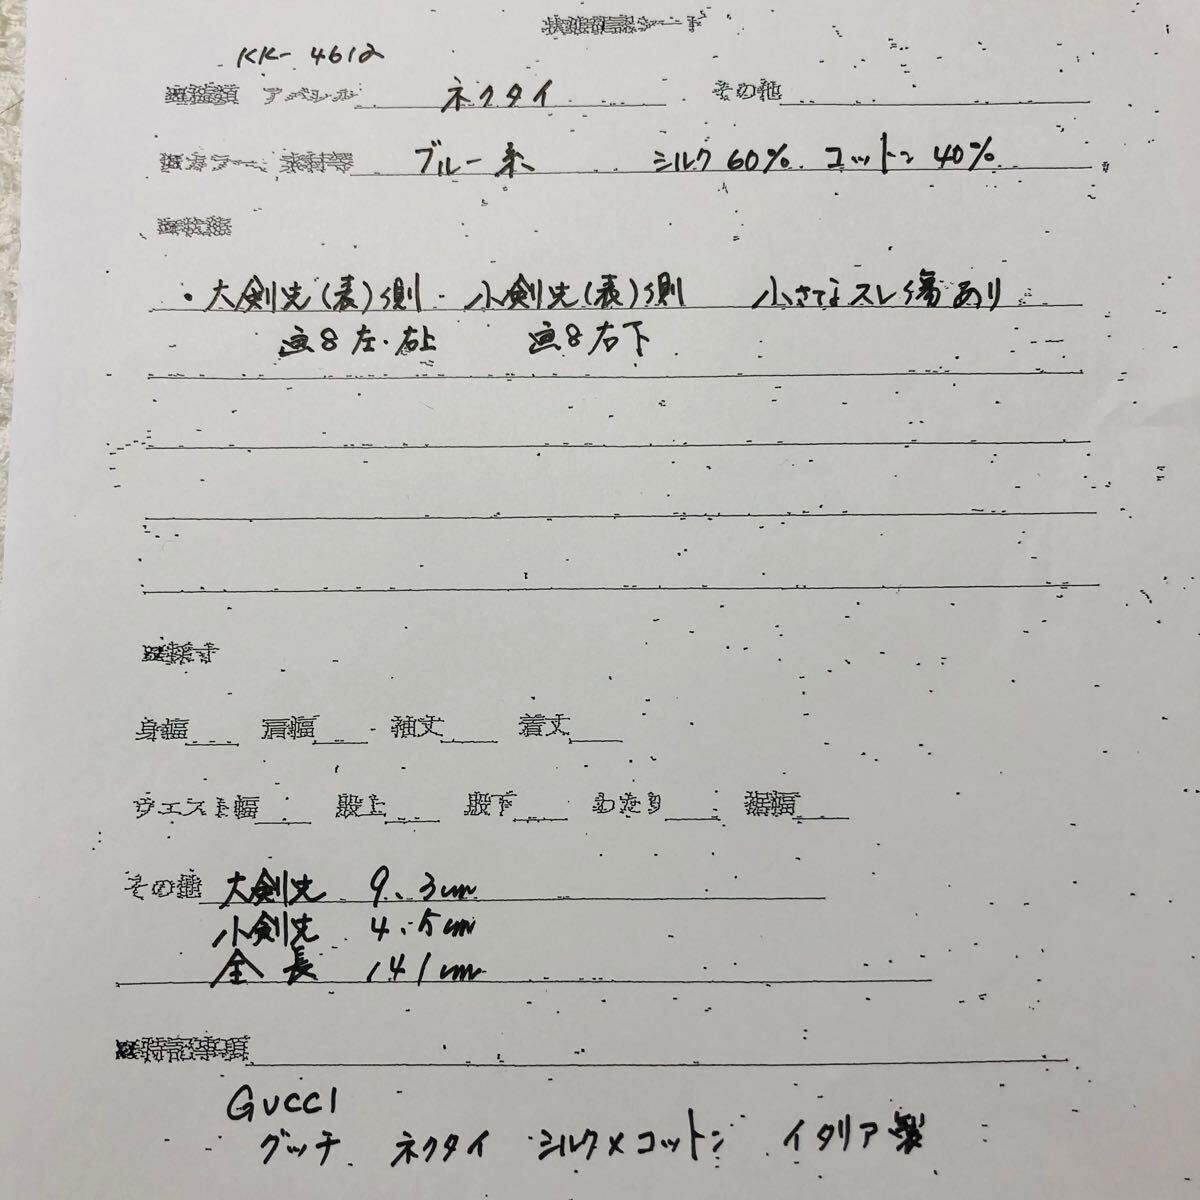 状態確認シート
KK-4612
■種類 アパレル ネクタイ その他
■カラー・素材等 ブルー系 シルク60% コットン40%
■状態
・大剣先(表)側・小剣先(表)側 小さなスレ傷あり
画8左・右上 画8右下
■採寸
身幅 肩幅 袖丈 着丈
ウエスト幅 股上 股下 わたり 裾幅
その他 大剣先 9.3cm
小剣先 4.5cm
全長 141cm
■特記事項
GUCCI
グッチ ネクタイ シルク×コットン イタリア製